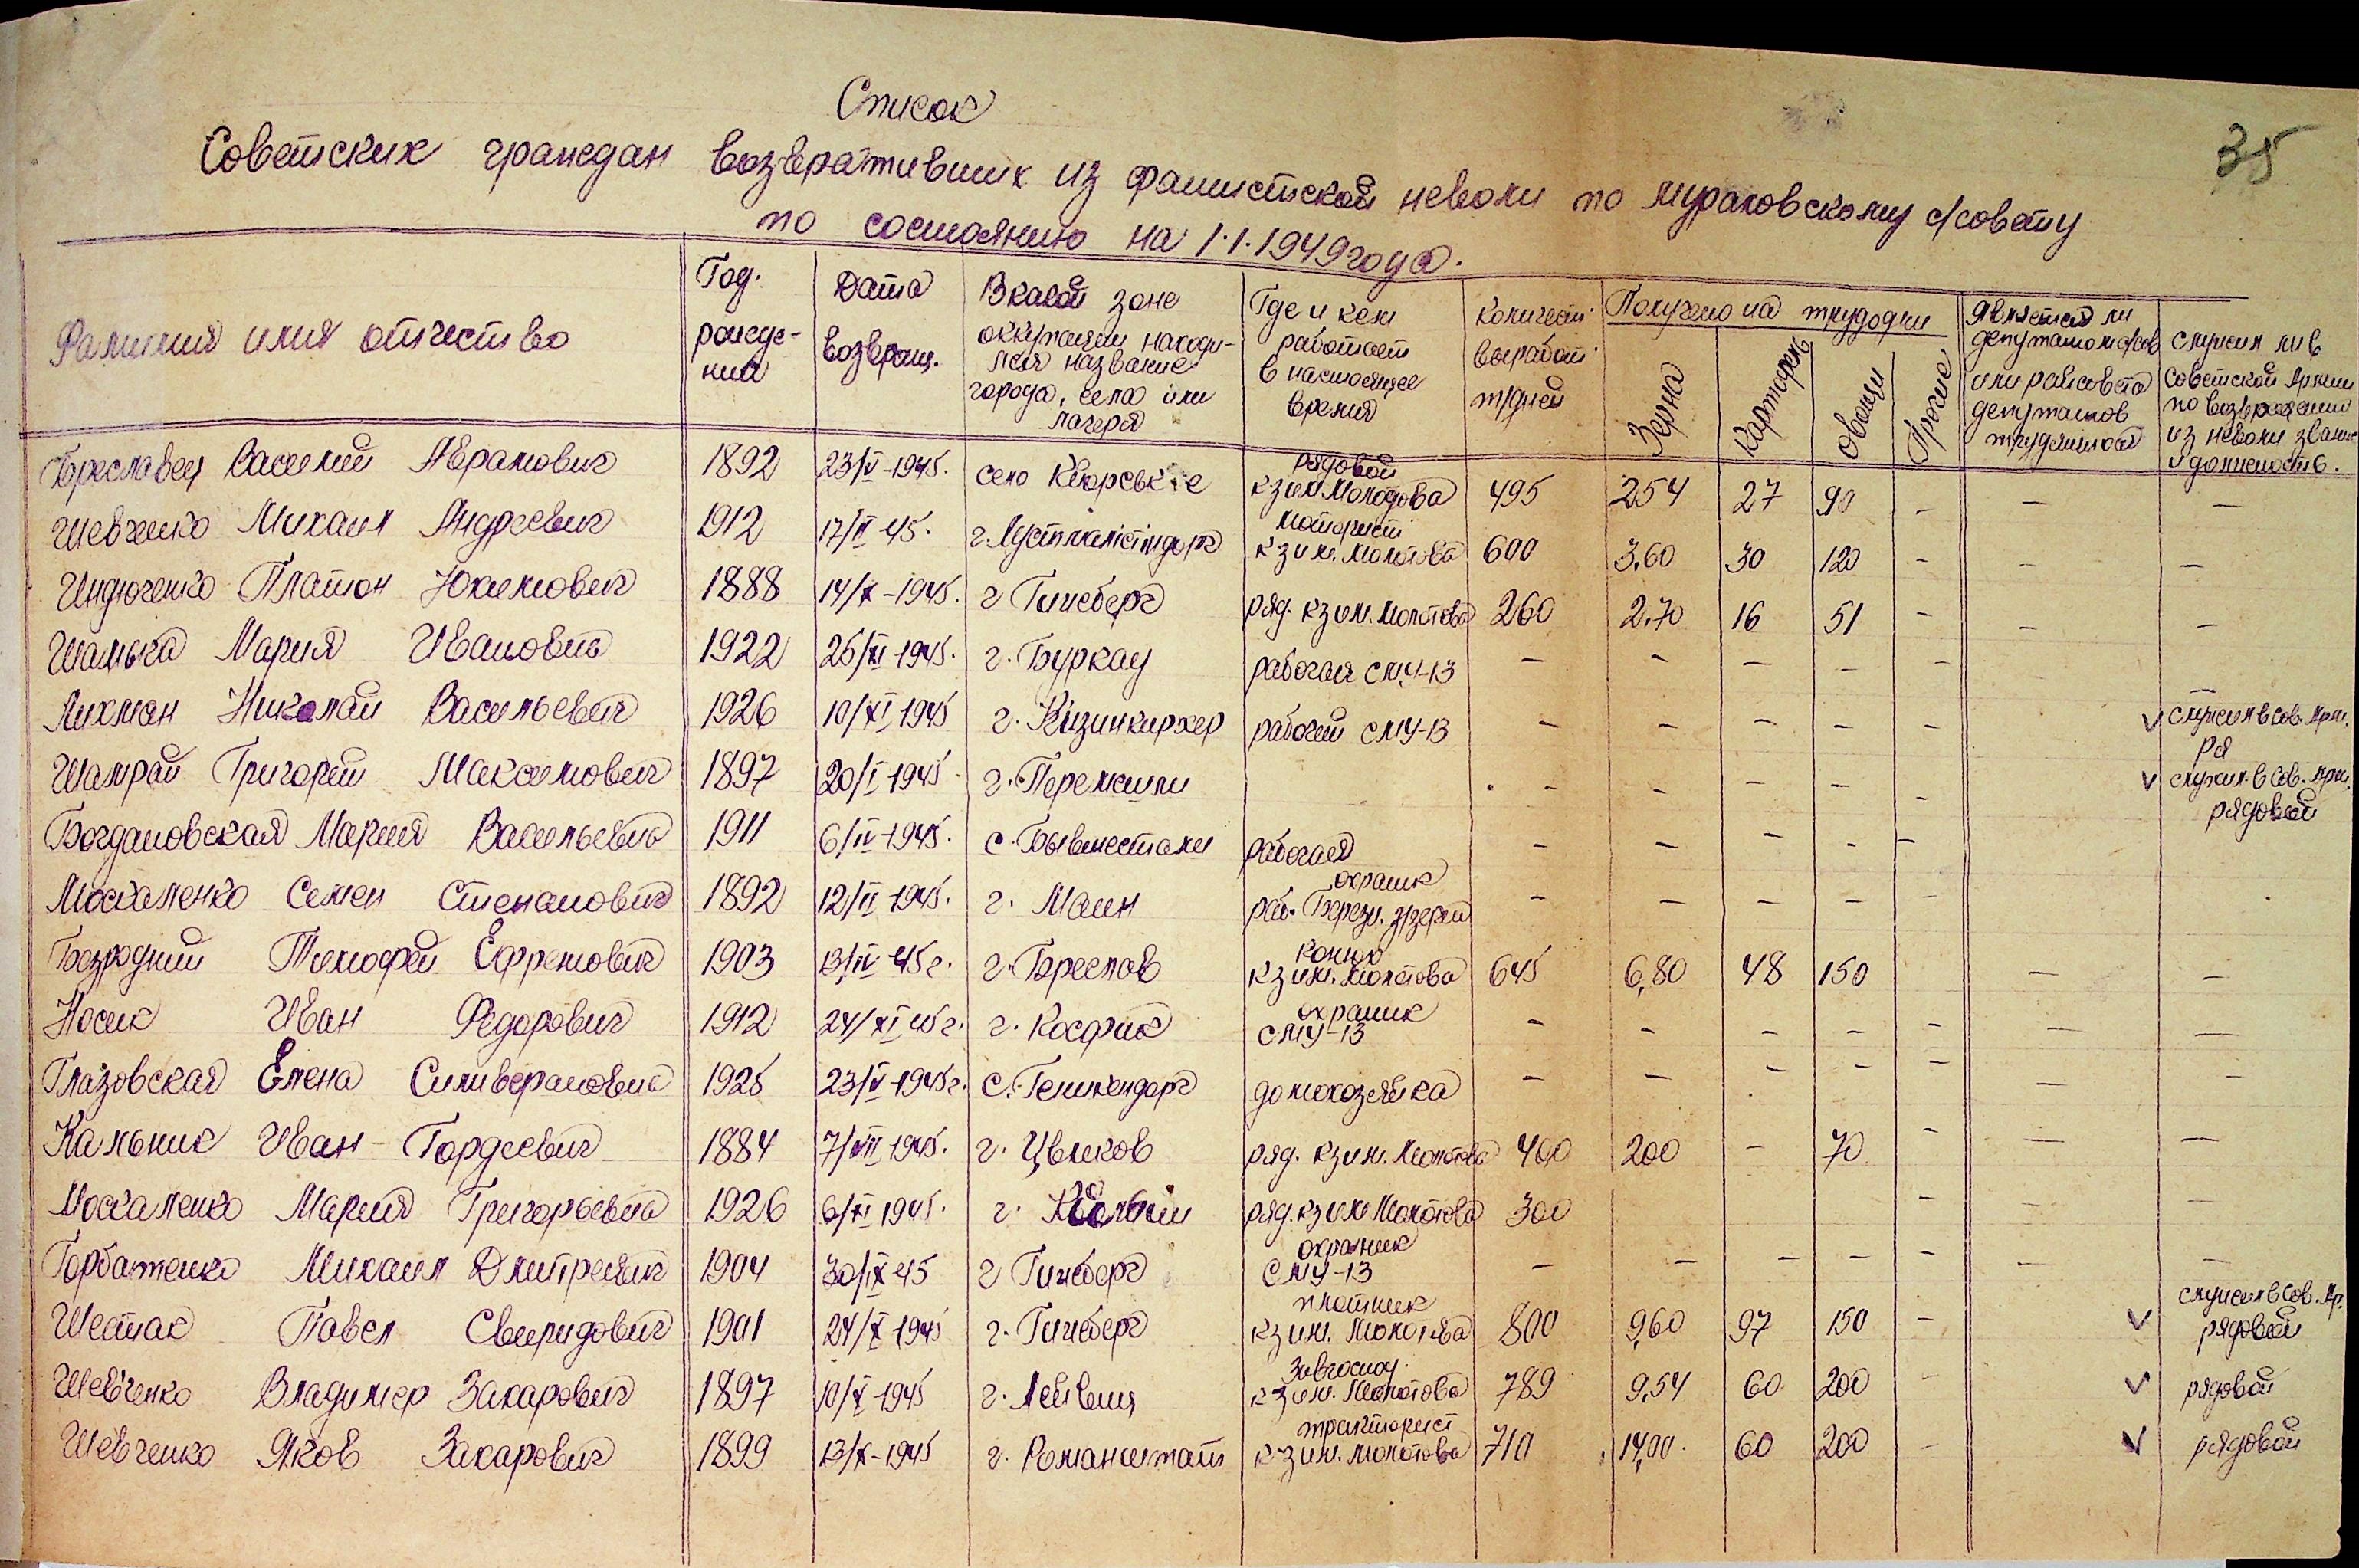 Список
35
Советских граждан возвратившихся из фашистской неволи по Мураховскому с/совету
по состоянию на 1.1.1949 года.
Фамилия имя отчество | Год рождения | Дата возвращ. | В какой зоне оккупации находился название города, села или лагеря | Где и кем работает в настоящее время | Количест. выработ. т/дней | Получено на трудодни | Зерна | Картофель | Овощи | Прочие | Является ли депутатом с/сов или райсовета депутатов трудящихся | Служил ли в Советской Армии по возвращении из неволи звание и должность.
Бреславец Василий Абрамович 1892 23/V-1945. село рядовой к-з им. Молотова 495 254 27 90 - - -
Шевченко Михаил Андреевич 1912 17/II 45. моторист к-з им. Молотова 600 3,60 30 120 - - -
Индюченко Платон Юхимович 1888 14/X-1945. г Гинсберг ряд. к-з им. Молотова 260 2,70 16 51 - - -
Шамыга Мария Ивановна 1922 25/XI-1945. г. Буркау рабочая СМУ-13 - - - - - -
Лихман Николай Васильевич 1926 10/XI 1945 г. Кизинкирхер рабочий СМУ-13 - - - - - v служил в Сов. Арм. ря
Шамрай Григорий Максимович 1897 20/I 1945 г. Перемишли - - - - - v служил в Сов. Арм. рядовой
Богдановская Мария Васильевна 1911 6/IV-1945. с. рабочая - - - - -
Москаленко Семен Степанович 1892 12/II 1945. г. Маин охраник раб. Берези. - - - - -
Безродний Тимофей Ефремович 1903 13/IV 45 г. г. Бреслов конюх к-з им. Молотова 645 6,80 48 150 - -
Носик Иван Федорович 1912 24/XI 45 г. г. Косфик охраник СМУ-13 - - - - - - -
Глазовская Елена Силиверановна 1925 23/V-1945 г. с. домохозяйка - - - - - - -
Кальник Иван Гордеевич 1884 7/VIII 1945. г. Цвиков ряд. к-з им. Молотова 400 200 - 70 - - -
Москаленко Мария Григорьевна 1926 6/XI 1945. г. ряд. к-з им Молотова 300 - - -
Горбатенко Михаил Дмитриевич 1904 30/IX 45 г Гинсберг охраник СМУ-13 - - - - - - -
Шестак Павел Свиридович 1901 24/X 1945 г. Гинсберг плотник к-з им. Молотова 800 9,60 97 150 - v служил в Сов. Ар. рядовой
Шевченко Владимер Захарович 1897 10/X-1945 г. Лейвиц к-з им. Молотова 789 9,54 60 200 - v рядовой
Шевченко Яков Захарович 1899 13/X-1945 г. Романштат тракторист к-з им. Молотова 710 14,00. 60 200 - v рядовой